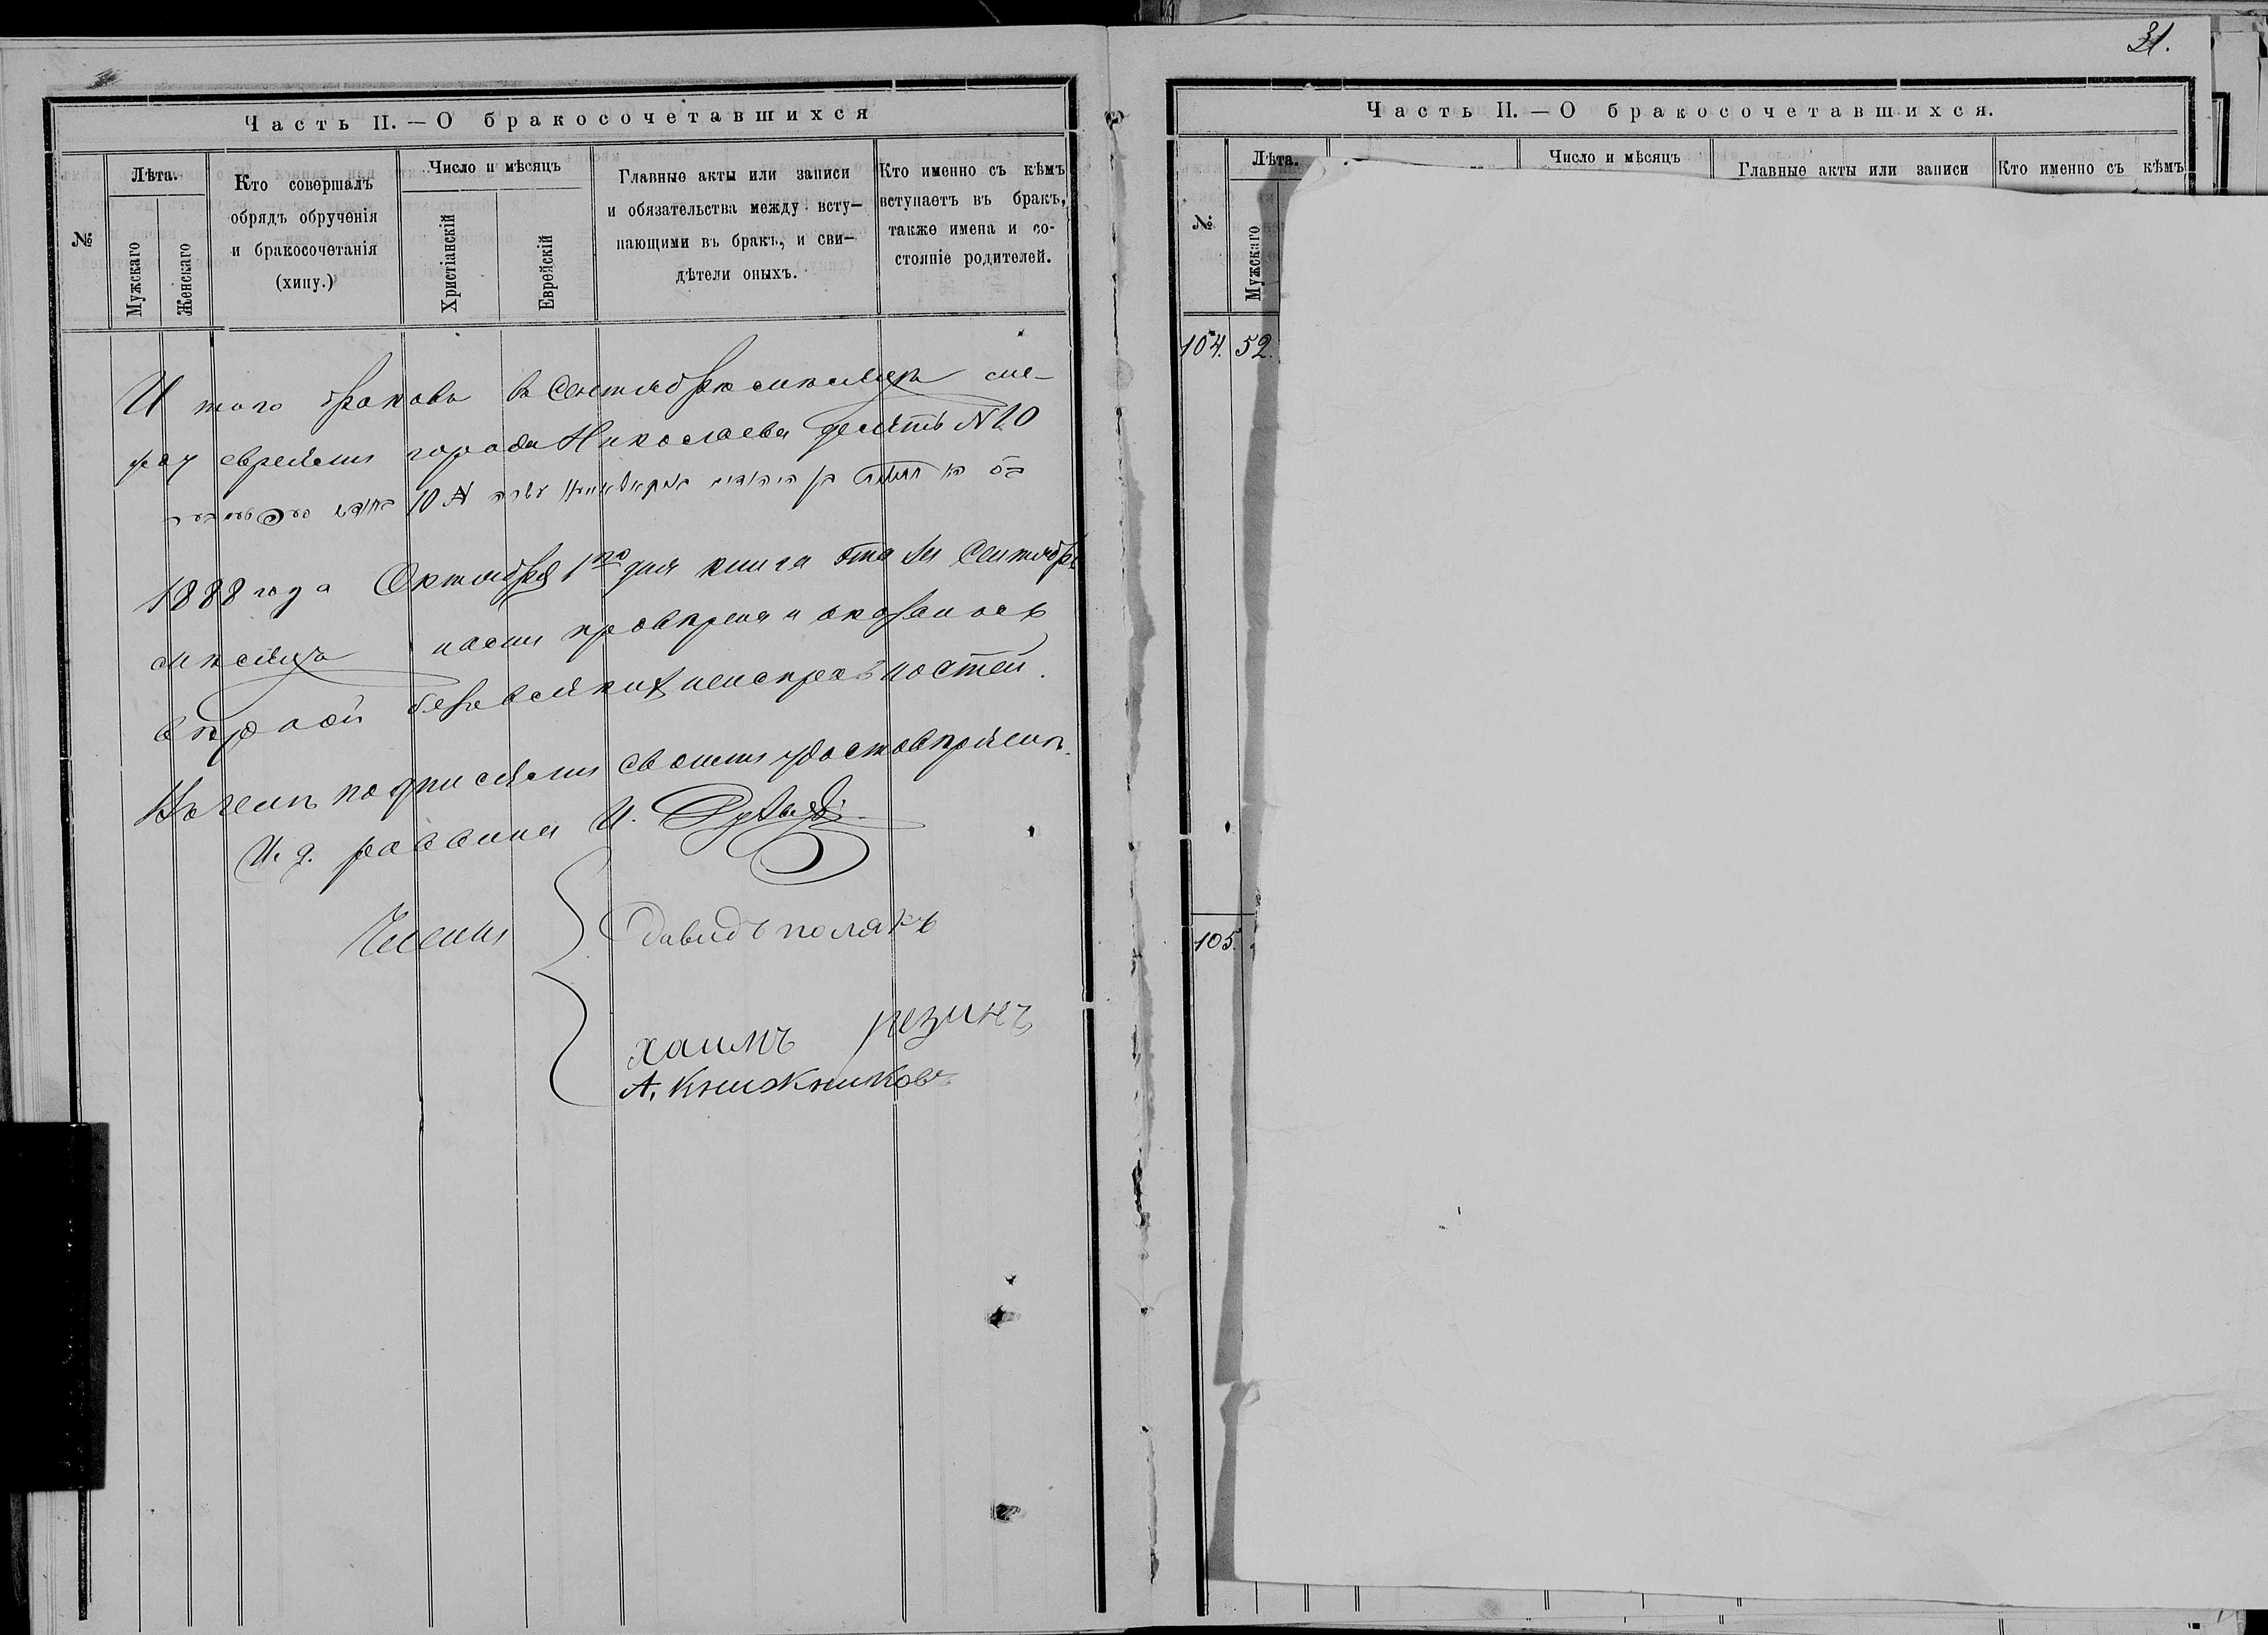 31.
Часть II. — О бракосочетавшихся
№
Лѣта.
Мужскаго
Женскаго
Кто совершалъ
обрядъ обрученія
и бракосочетанія
(хипу.)
Число и мѣсяцъ
Христіанскій
Еврейскій
Главные акты или записи
и обязательства между всту-
пающими въ бракъ, и сви-
дѣтели оныхъ.
Кто именно съ кѣмъ
вступаетъ въ бракъ,
также имена и со-
стояніе родителей.
Итого браковъ въ Сентябрѣ мѣсяцѣ ме-
жду евреями города Николаева десять № 10
10 №
1888 года Октября 1го дня книга эта за Сентябрь
мѣсяцъ нами провѣрена и оказалось
вѣрной безъ всякихъ неисправностей.
Въ чемъ подписями своими удостовѣряемъ.
И. д. раввина И.
Члены
Давидъ полякъ
хаимъ резинъ
А. Книжниковъ
Часть II. — О бракосочетавшихся.
№
Лѣта.
Мужскаго
Число и мѣсяцъ
Главные акты или записи
Кто именно съ кѣмъ
104. 52.
105.